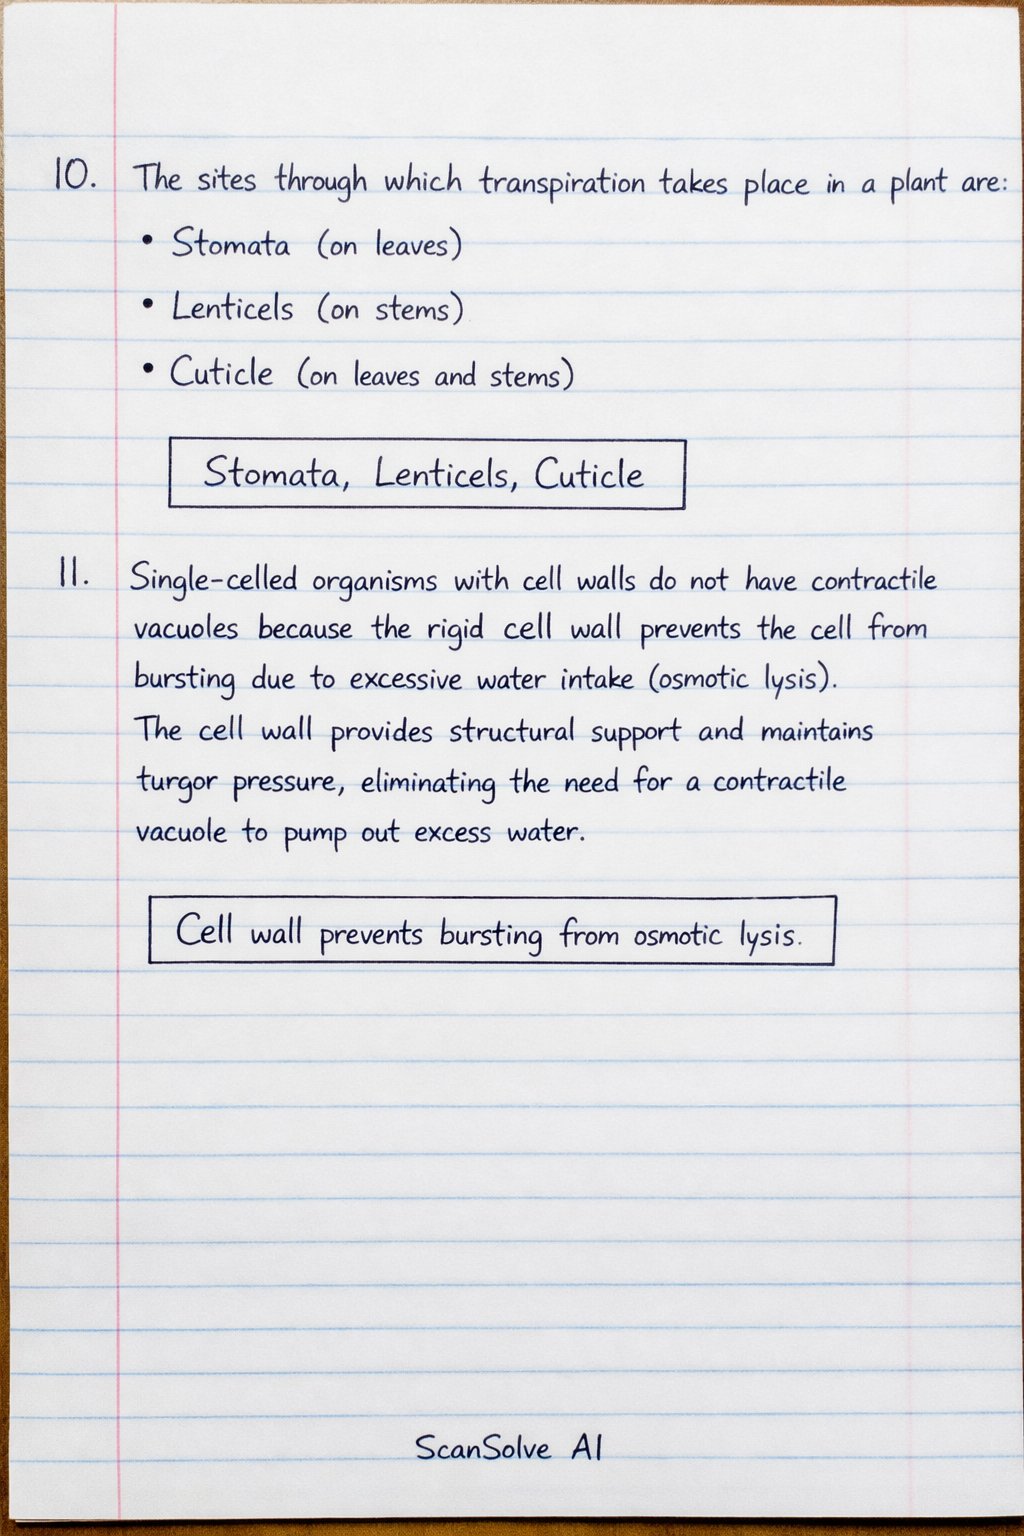 10. The sites through which transpiration takes place in a plant are:
• Stomata (on leaves)
• Lenticels (on stems)
• Cuticle (on leaves and stems)
Stomata, Lenticels, Cuticle
11. Single-celled organisms with cell walls do not have contractile
vacuoles because the rigid cell wall prevents the cell from
bursting due to excessive water intake (osmotic lysis).
The cell wall provides structural support and maintains
turgor pressure, eliminating the need for a contractile
vacuole to pump out excess water.
Cell wall prevents bursting from osmotic lysis.
ScanSolve AI